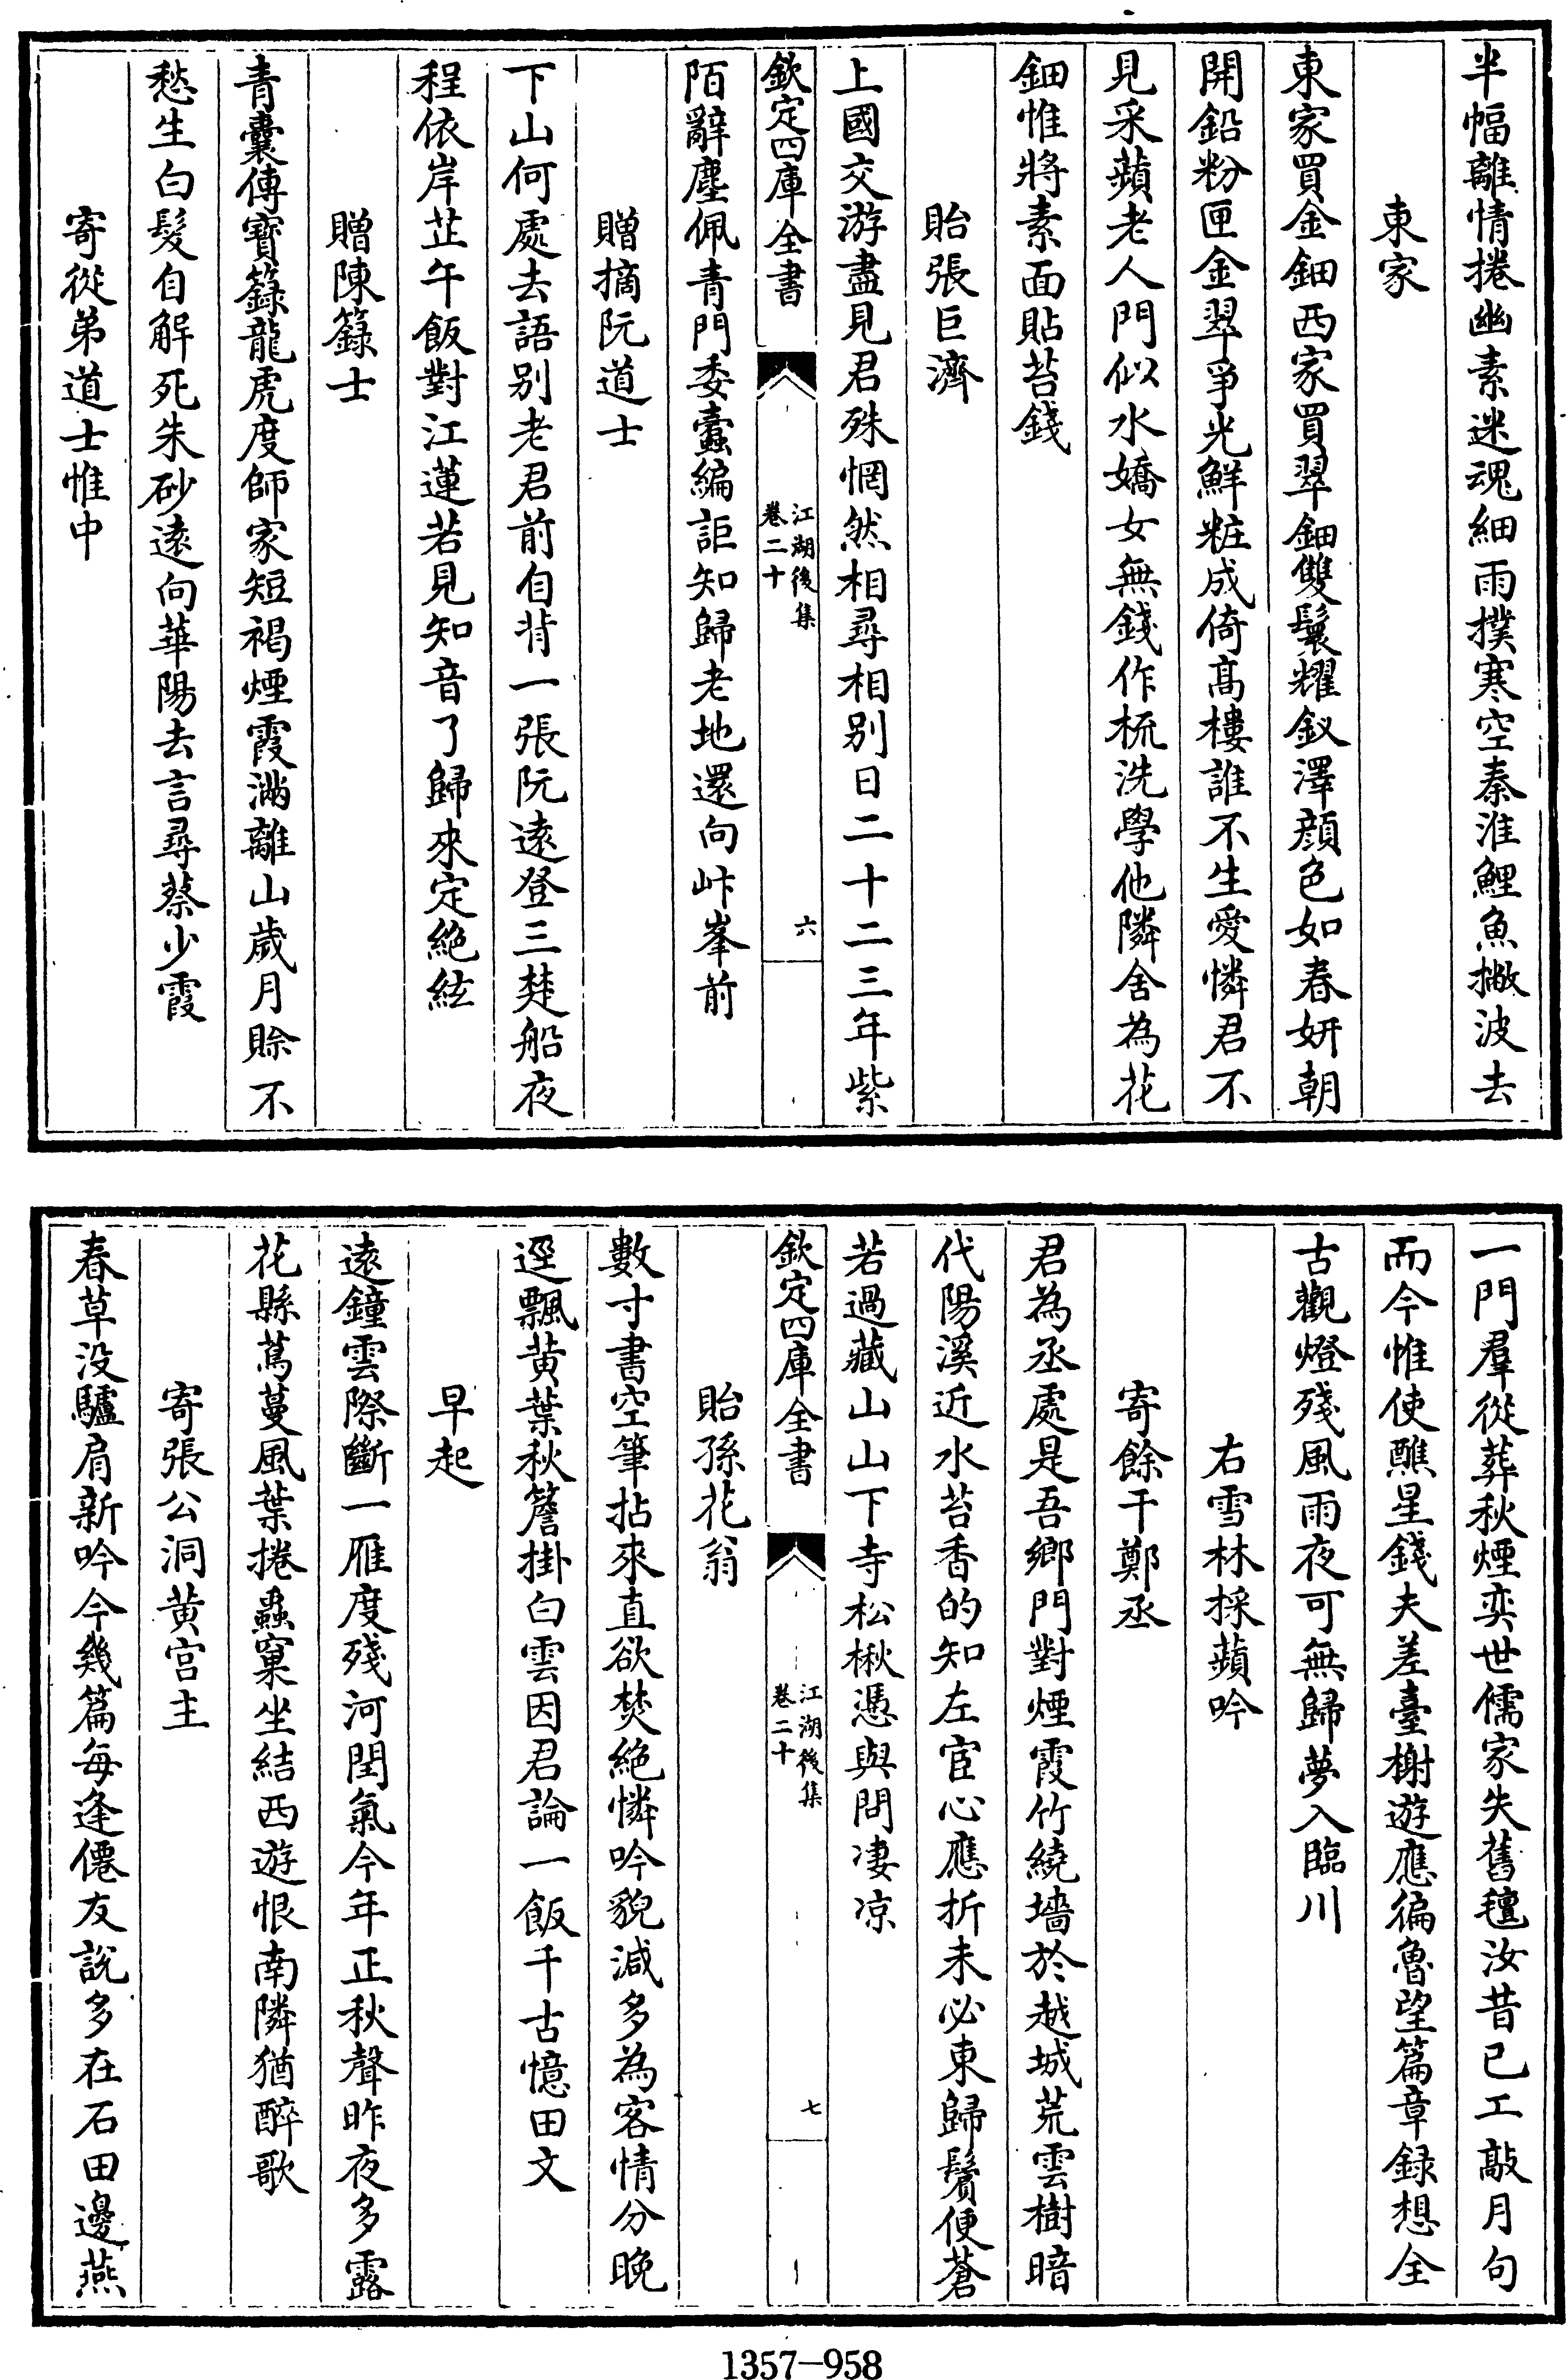 半幅離情捲幽素迷魂細雨撲寒空秦淮鯉魚撇波去
東家
東家買金鈿西家買翠鈿雙鬟耀釵澤顔色如春妍朝
開鉛粉匣金翠爭光鮮粧成倚髙樓誰不生愛憐君不
見采蘋老人門似水嬌女無錢作梳洗學他隣舍為花
鈿惟將素面貼苔錢
貽張巨濟
上國交游盡見君殊惘然相尋相别日二十二三年紫
欽定四庫全書
江湖後集
卷二十
六
陌辭塵佩青門委蠹編詎知歸老地還向峅峯前
贈摘阮道士
下山何處去語别老君前自背一張阮遠登三楚船夜
程依岸芷午飯對江蓮若見知音了歸來定絶絃
贈陳籙士
青囊傳寶籙龍虎度師家短褐煙霞滿離山歲月賒不
愁生白髮自解死朱砂遠向華陽去言尋蔡少霞
寄從弟道士惟中
一門羣從葬秋煙奕世儒家失舊氊汝昔已工敲月句
而今惟使醮星錢夫差臺榭遊應徧魯望篇章録想全
古觀燈殘風雨夜可無歸夢入臨川
右雪林採蘋吟
寄餘干鄭丞
君為丞處是吾鄉門對煙霞竹繞墻於越城荒雲樹暗
代陽溪近水苔香的知左宦心應折未必東歸鬢便蒼
若過藏山山下寺松楸憑與問凄凉
欽定四庫全書
江湖後集
卷二十
七
貽孫花翁
數寸書空筆拈來直欲焚絶憐吟貌減多為客情分晩
逕飄黄葉秋簷掛白雲因君論一飯千古憶田文
早起
遠鐘雲際斷一雁度殘河閏氣今年正秋聲昨夜多露
花縣蔦蔓風葉捲蟲窠坐結西遊恨南隣猶醉歌
寄張公洞黄宫主
春草没驢肩新吟今幾篇每逢僊友說多在石田邊燕
1357-958